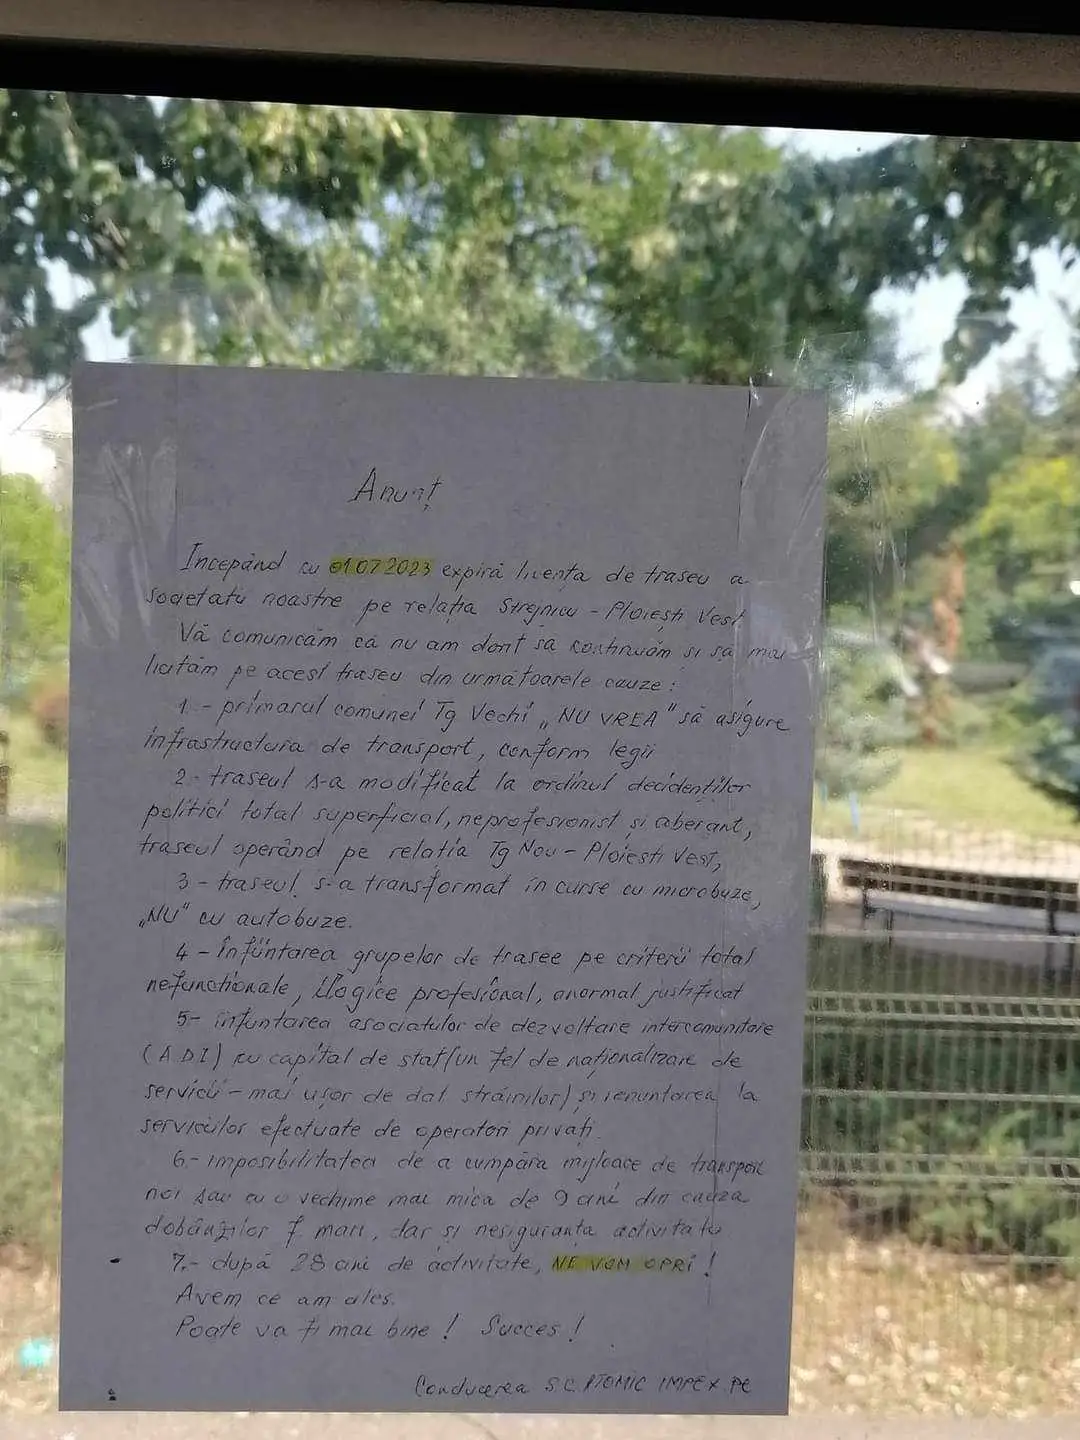 Anunț
Incepând cu 01.07.2023 expiră licența de traseu a
societății noastre pe relația Strejnicu - Ploiești Vest
Vă comunicăm că nu am dorit să continuăm și să mai
licităm pe acest traseu din următoarele cauze :
1 - primarul comunei Tg Vechi „NU VREA" să asigure
infrastructura de transport, conform legii
2 - traseul s-a modificat la ordinul decidenților
politici total superficial, neprofesionist și aberant,
traseul operând pe relatia Tg Nou - Ploiesti Vest,
3 - traseul s-a transformat in curse cu microbuze,
„NU" cu autobuze.
4 - Infiintarea grupelor de trasee pe criterii total
nefunctionale, ilogice profesional, anormal justificat
5- infiintarea asociatiilor de dezvoltare intercomunitare
(A D I) cu capital de stat (un fel de naționalizare de
servicii - mai ușor de dat străinilor) și renuntarea la
serviciilor efectuate de operatori privati.
6.- imposibilitatea de a cumpăra mijloace de transport
noi sau cu o vechime mai mica de 9 ani din cauza
dobânzilor f. mari, dar și nesiguranta activitatii
7.- după 28 ani de activitate, NE VOM OPRI !
Avem ce am ales.
Poate va fi mai bine ! Succes !
Conducerea S.C. ATOMIC IMPEX